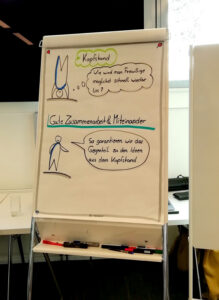 Kopfstand
Wie wird man Freiwillige
möglichst schnell wieder
los?
Gute Zusammenarbeit & Miteinander
So garantieren wir das
Gegenteil zu den Ideen
aus dem Kopfstand